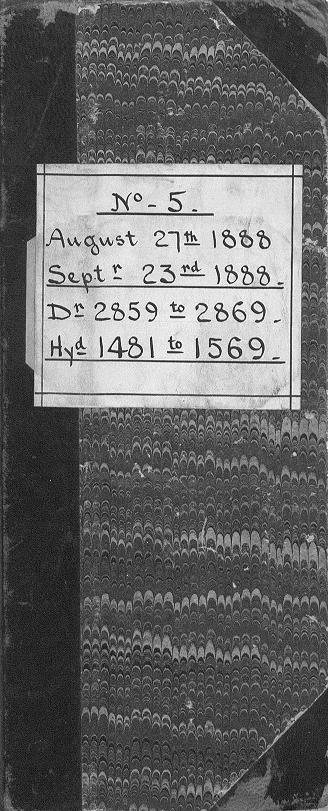 Nº - 5.
August 27th 1888
Septr 23rd 1888.
Dr 2859 to 2869.
Hyd 1481 to 1569.